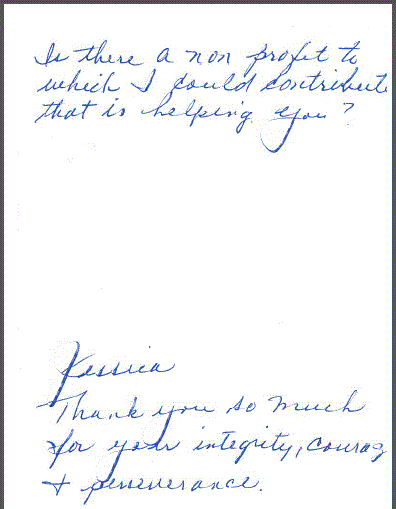 Is there a non profit to
which I could contribute
that is helping you?
Jessica
Thank you so much
for your integrity, courag
+ perseverance.